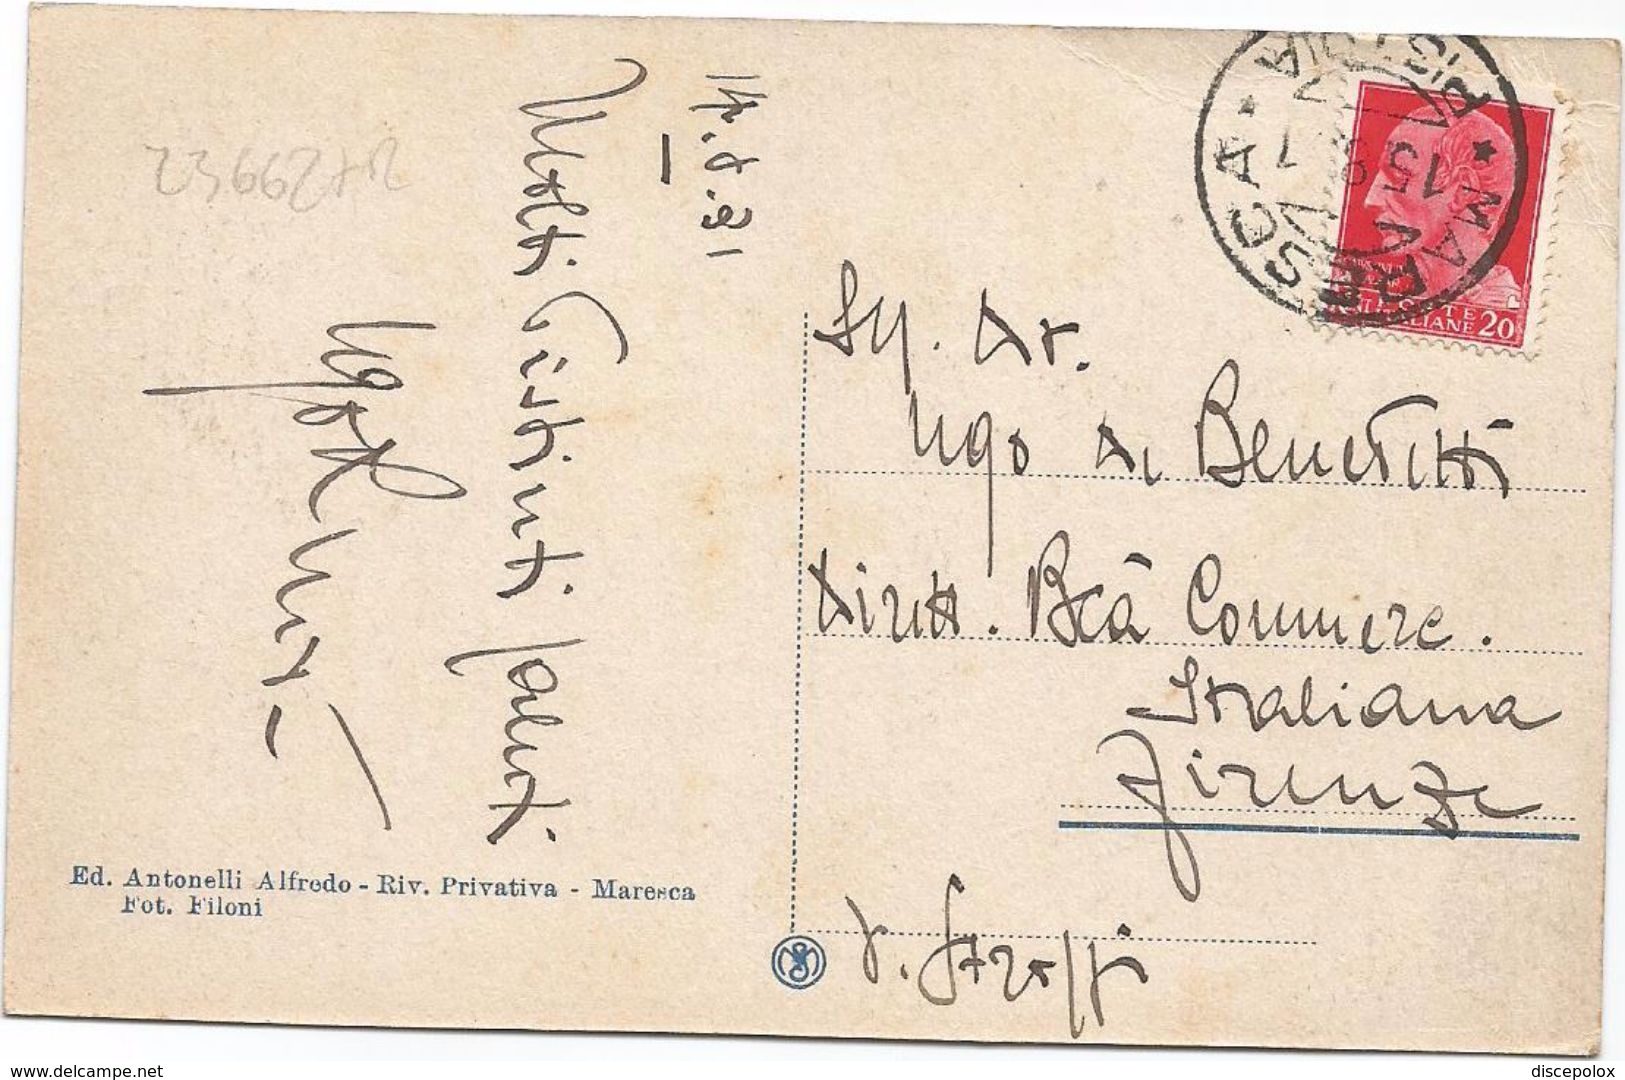 14.8.31
Molti distinti saluti
2366272
Ed. Antonelli Alfredo - Riv. Privativa - Maresca
Fot. Filoni
MARESCA
PISTOIA
15 8
POSTE
ITALIANE 20
Sig. Dr.
Ugo de Benedetti
Dirett. Bca Commerc.
Italiana
Firenze
V. Strozzi
www.delcampe.net
discepolox